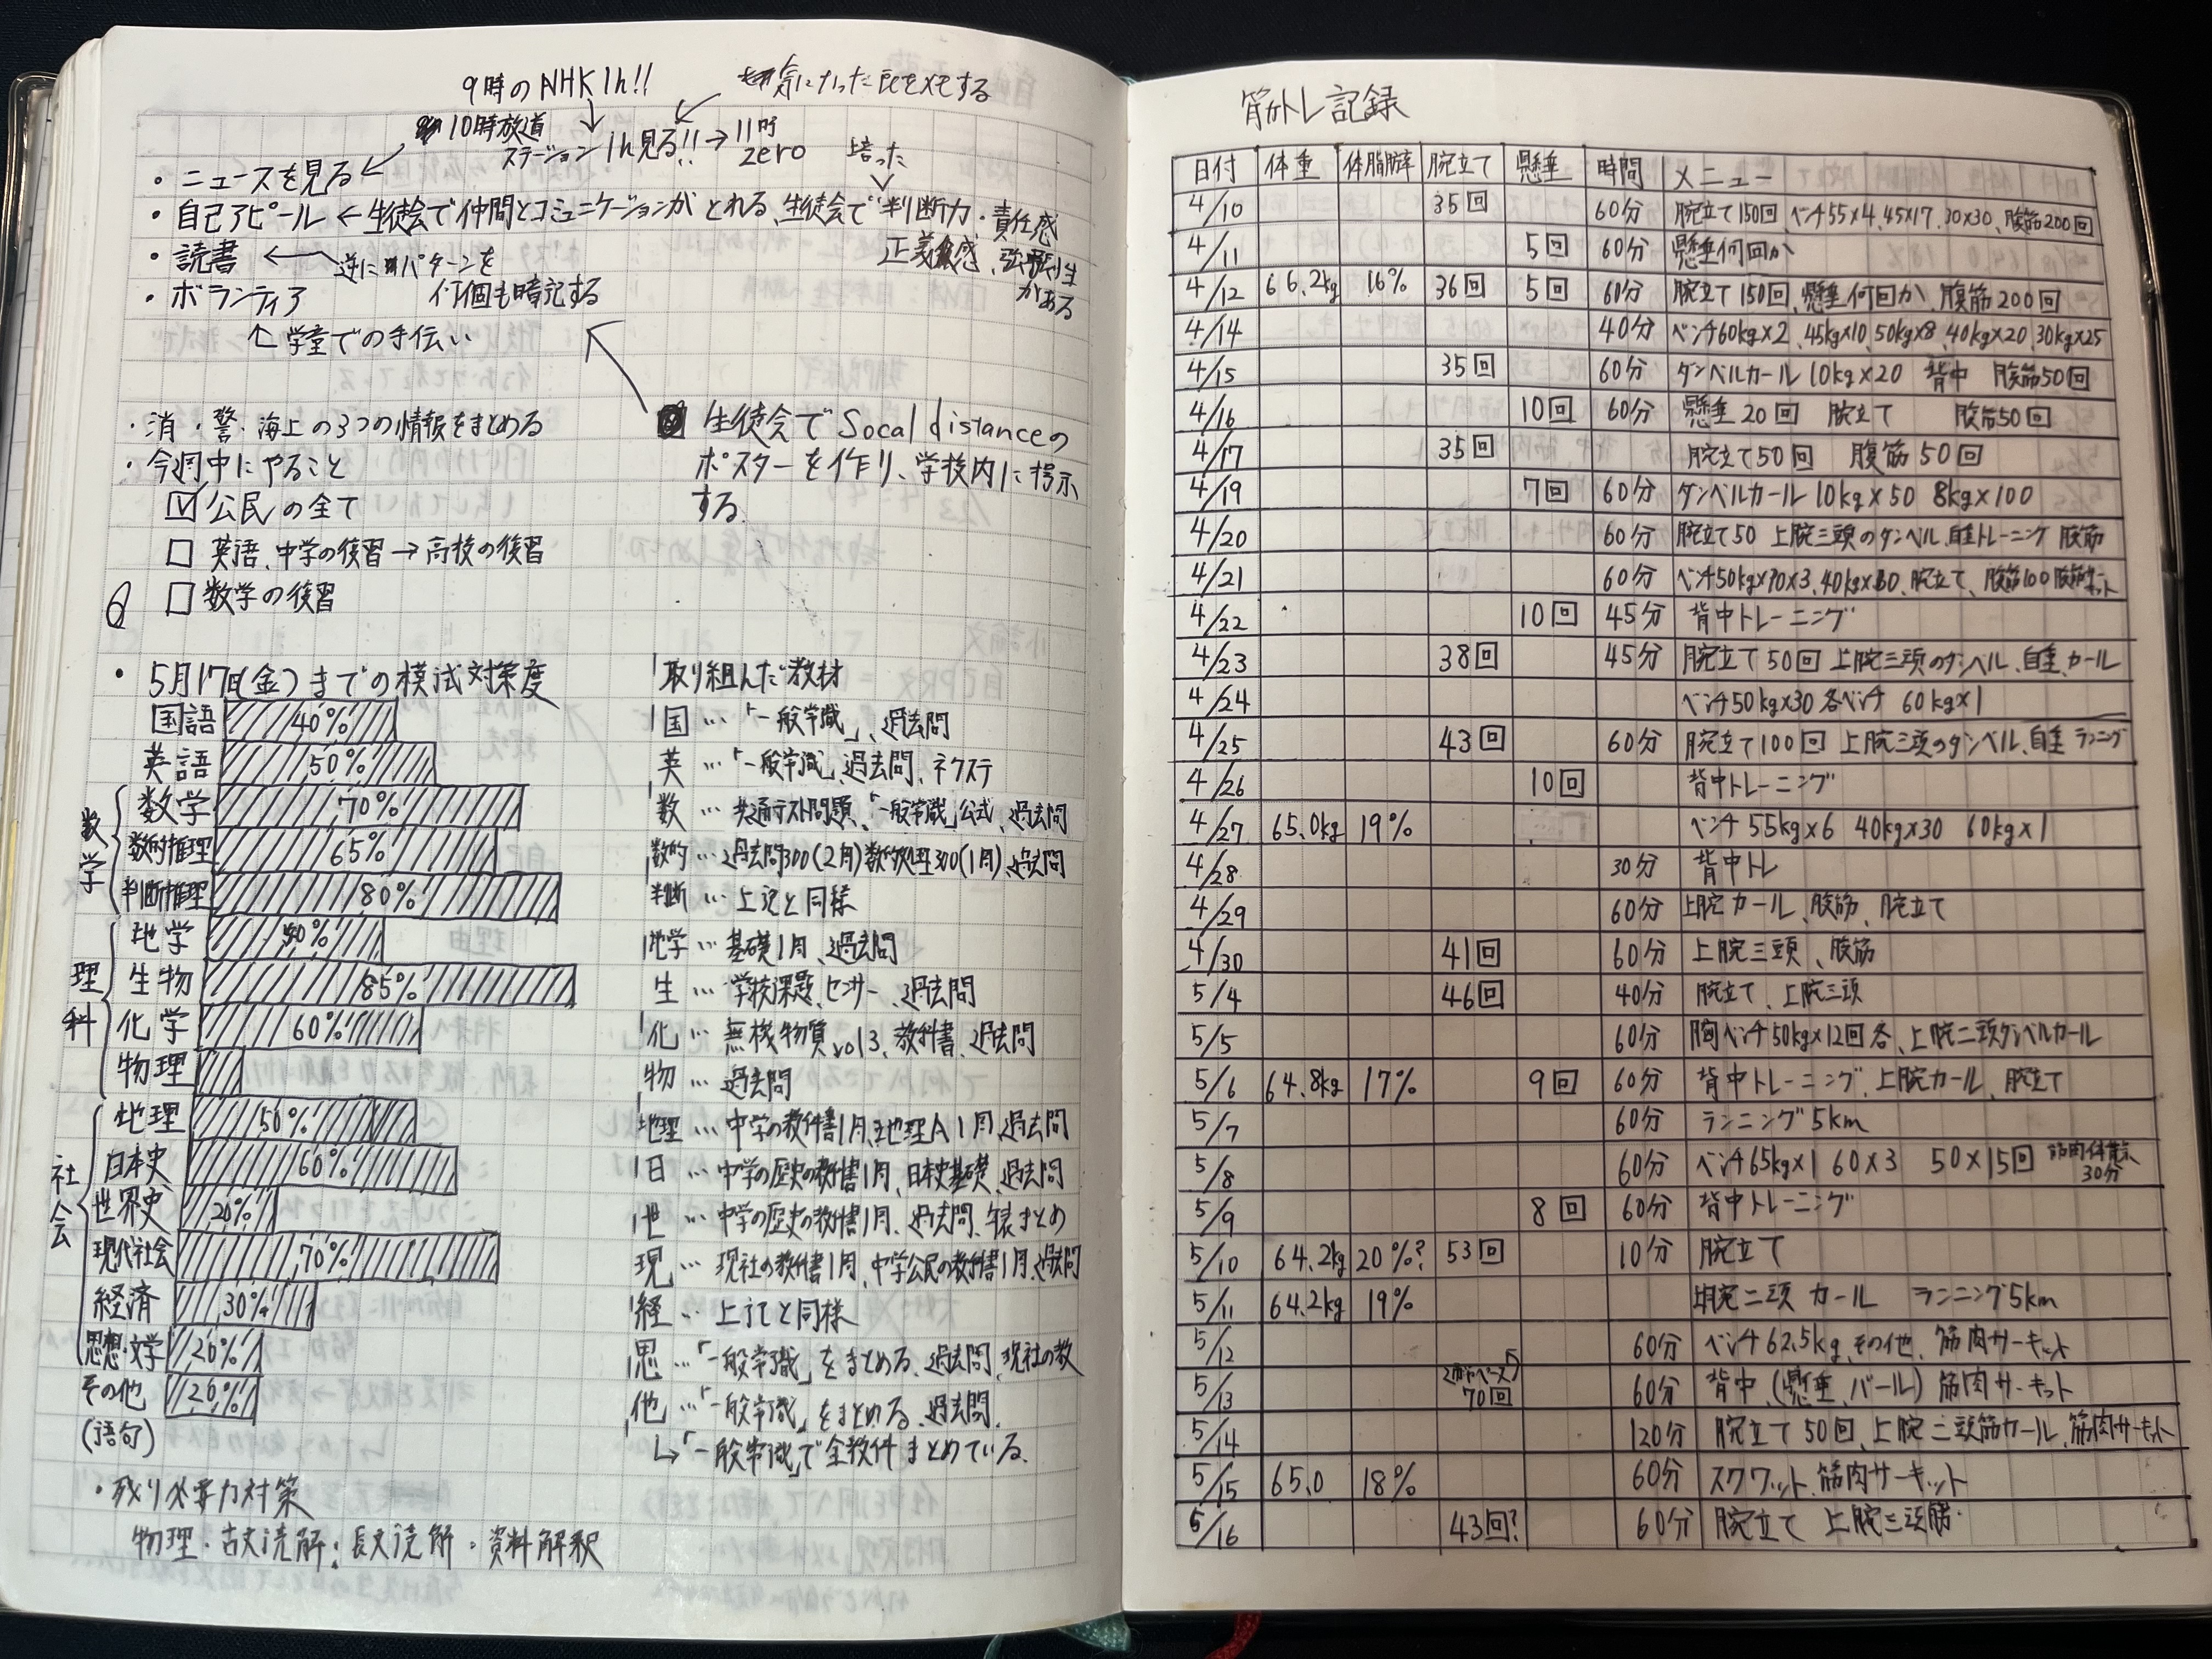 9時のNHK 1h!!
気になった氏をメモする
10時放道
ステーション 1h見る!! → 11時
zero
培った
・ニュースを見る ←
・自己アピール ← 生徒会で仲間とコミュニケーションがとれる、生徒会で判断力・責任感
正義感、強調性
がある
・読書 ← 逆にパターンを
何個も暗記する
・ボランティア
↑学童での手伝い
・消・警・海上の3つの情報をまとめる
・今週中にやること
☑ 公民の全て
□ 英語、中学の復習→高校の復習
□ 数学の復習
生徒会でSocal distanceの
ポスターを作り、学校内に掲示
する.
・5月17日(金)までの模試対策度
国語 40%
英語 50%
数学
数学 70%
数的推理 65%
判断推理 80%
理科
地学
生物 85%
化学 60%
物理
社会
地理 50%
日本史 60%
世界史 20%
現代社会 70%
経済 30%
思想・文学 20%
その他 20%
(語句)
・残り必要力対策
物理・古文読解・長文読解・資料解釈
取り組んだ教材
国…「一般常識」、過去問
英…「一般常識」、過去問、ネクステ
数…共通テスト問題、「一般常識」公式、過去問
数的…過去問300(2周)数的処理300(1周)、過去問
判断…上記と同様
地学…基礎1周、過去問
生…学校課題、センサー、過去問
化…無機物質vol3、教科書、過去問
物…過去問
地理…中学の教科書1周、地理A1周、過去問
日…中学の歴史の教科書1周、日本史基礎、過去問
世…中学の歴史の教科書1周、過去問、年表まとめ
現…現社の教科書1周、中学公民の教科書1周、過去問
経…上記と同様
思…「一般常識」をまとめる、過去問、現社の教
他…「一般常識」をまとめる、過去問、
↳「一般常識」で全教科まとめている.
筋トレ記録
日付 体重 体脂肪率 腕立て 懸垂 時間 メニュー
4/10 35回 60分 腕立て150回、ベンチ55×4、45×17、30×30、腹筋200回
4/11 5回 60分 懸垂何回か
4/12 66.2kg 16% 36回 5回 60分 腕立て150回、懸垂何回か、腹筋200回
4/14 40分 ベンチ60kg×2、45kg×10、50kg×8、40kg×20、30kg×25
4/15 35回 60分 ダンベルカール10kg×20 背中 腹筋50回
4/16 10回 60分 懸垂20回 腕立て 腹筋50回
4/17 35回 腕立て50回 腹筋50回
4/19 7回 60分 ダンベルカール10kg×50 8kg×100
4/20 60分 腕立て50 上腕三頭のダンベル、自重トレーニング 腹筋
4/21 60分 ベンチ50kg×3、40kg、腕立て、腹筋100
4/22 10回 45分 背中トレーニング
4/23 38回 45分 腕立て50回 上腕三頭のダンベル、自重、カール
4/24 ベンチ50kg×30 各ベンチ 60kg×1
4/25 43回 60分 腕立て100回 上腕三頭のダンベル、自重 ランニング
4/26 10回 背中トレーニング
4/27 65.0kg 19% ベンチ55kg×6 40kg×30 60kg×1
4/28 30分 背中トレ
4/29 60分 上腕カール、腹筋、腕立て
4/30 41回 60分 上腕三頭、腹筋
5/4 46回 40分 腕立て、上腕三頭
5/5 60分 胸ベンチ50kg×12回各、上腕二頭ダンベルカール
5/6 64.8kg 17% 9回 60分 背中トレーニング、上腕カール、腕立て
5/7 60分 ランニング5km
5/8 60分 ベンチ65kg×1 60×3 50×15回 30分
5/9 8回 60分 背中トレーニング
5/10 64.2kg 20%? 53回 10分 腕立て
5/11 64.2kg 19% 上腕二頭 カール ランニング5km
5/12 60分 ベンチ62.5kg、その他、筋肉サーキット
5/13 70回 60分 背中、(懸垂、バール) 筋肉サーキット
5/14 120分 腕立て50回、上腕二頭筋カール、筋肉サーキット
5/15 65.0 18% 60分 スクワット、筋肉サーキット
5/16 43回? 60分 腕立て 上腕三頭筋